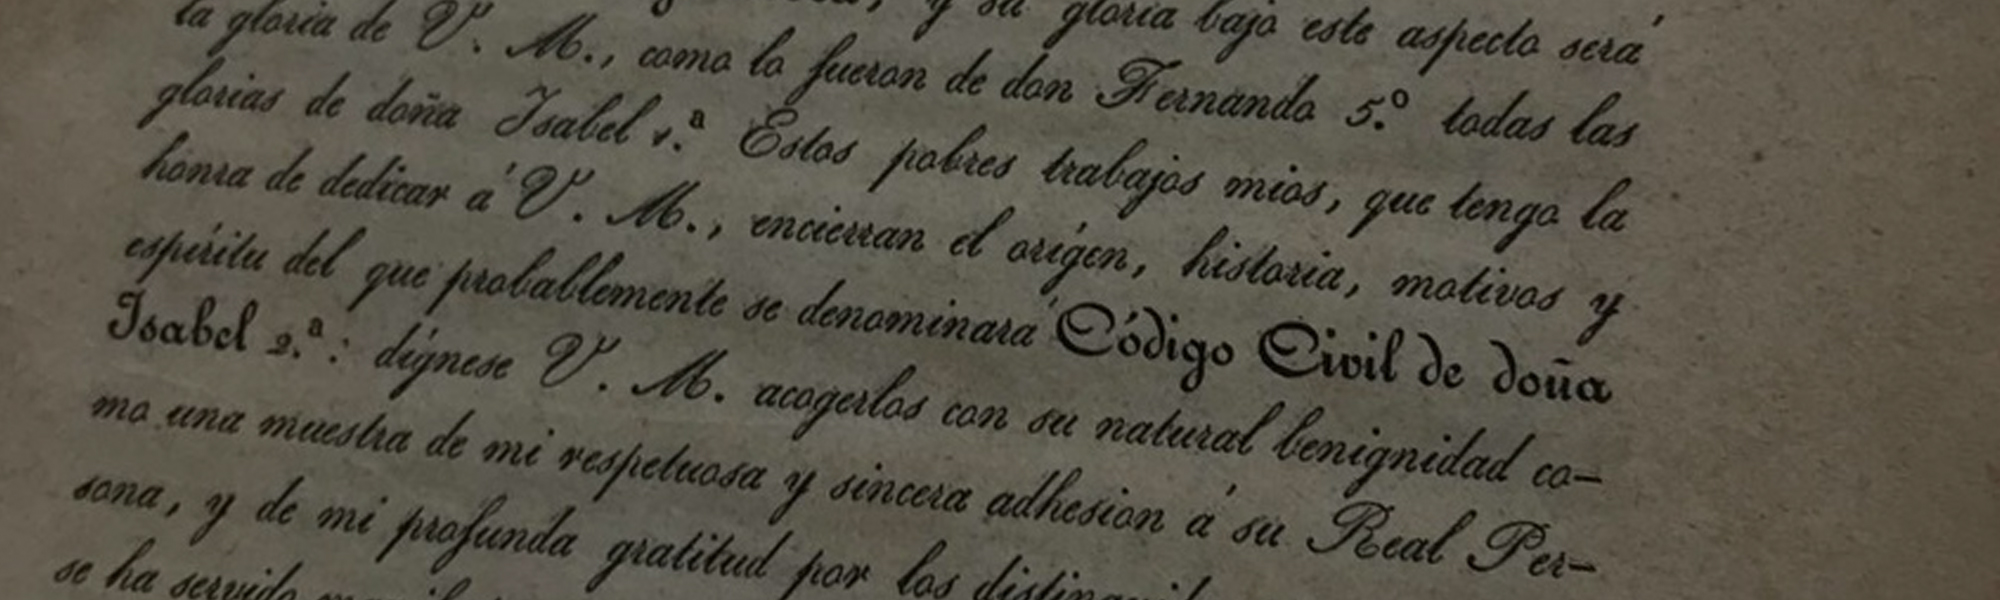 y su gloria bajo este aspecto será
la gloria de V. M., como lo fueron de don Fernando 5.º todas las
glorias de doña Isabel 1.ª Estos pobres trabajos mios, que tengo la
honra de dedicar á V. M., encierran el orígen, historia, motivos y
espíritu del que probablemente se denominará Código Civil de doña
Isabel 2.ª: dígnese V. M. acogerlos con su natural benignidad co-
mo una muestra de mi respetuosa y sincera adhesion á su Real Per-
sona, y de mi profunda gratitud por los
se ha servido